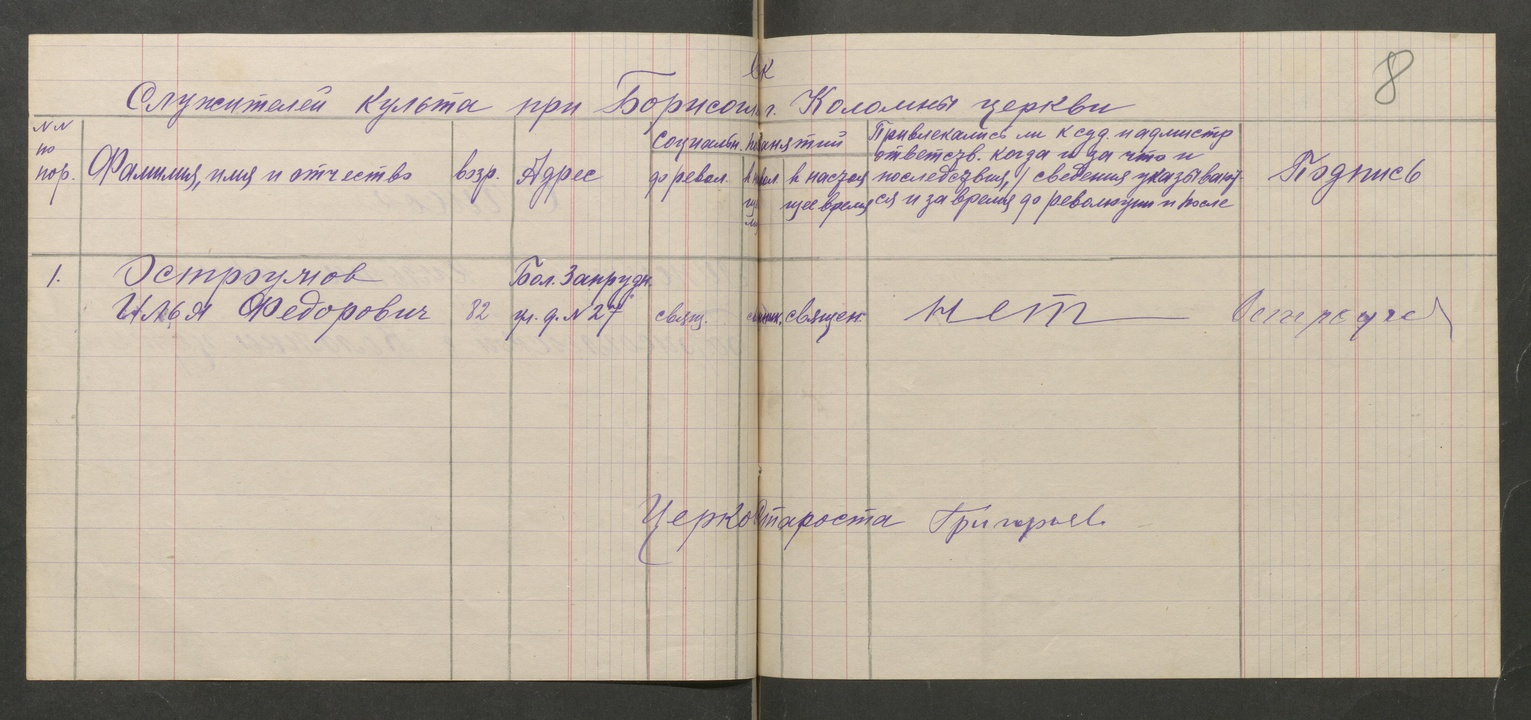 8
Служителей культа при Борисогл. г. Коломны церкви
№№ по пор.
Фамилия, имя и отчество
возр.
Адрес
Социальн. занятий
до револ.
в настоя
щее время
Привлекались ли к суд. и админстр
ответств. когда и за что и
последствия, / сведения указывают
ся и за время до революции и после
Подпись
1.
Остроумов
Илья Федорович
82
Бол. Запрудн.
ул. д. № 27
свящ.
священ.
нет
Остроумов
Церков староста Григорьев